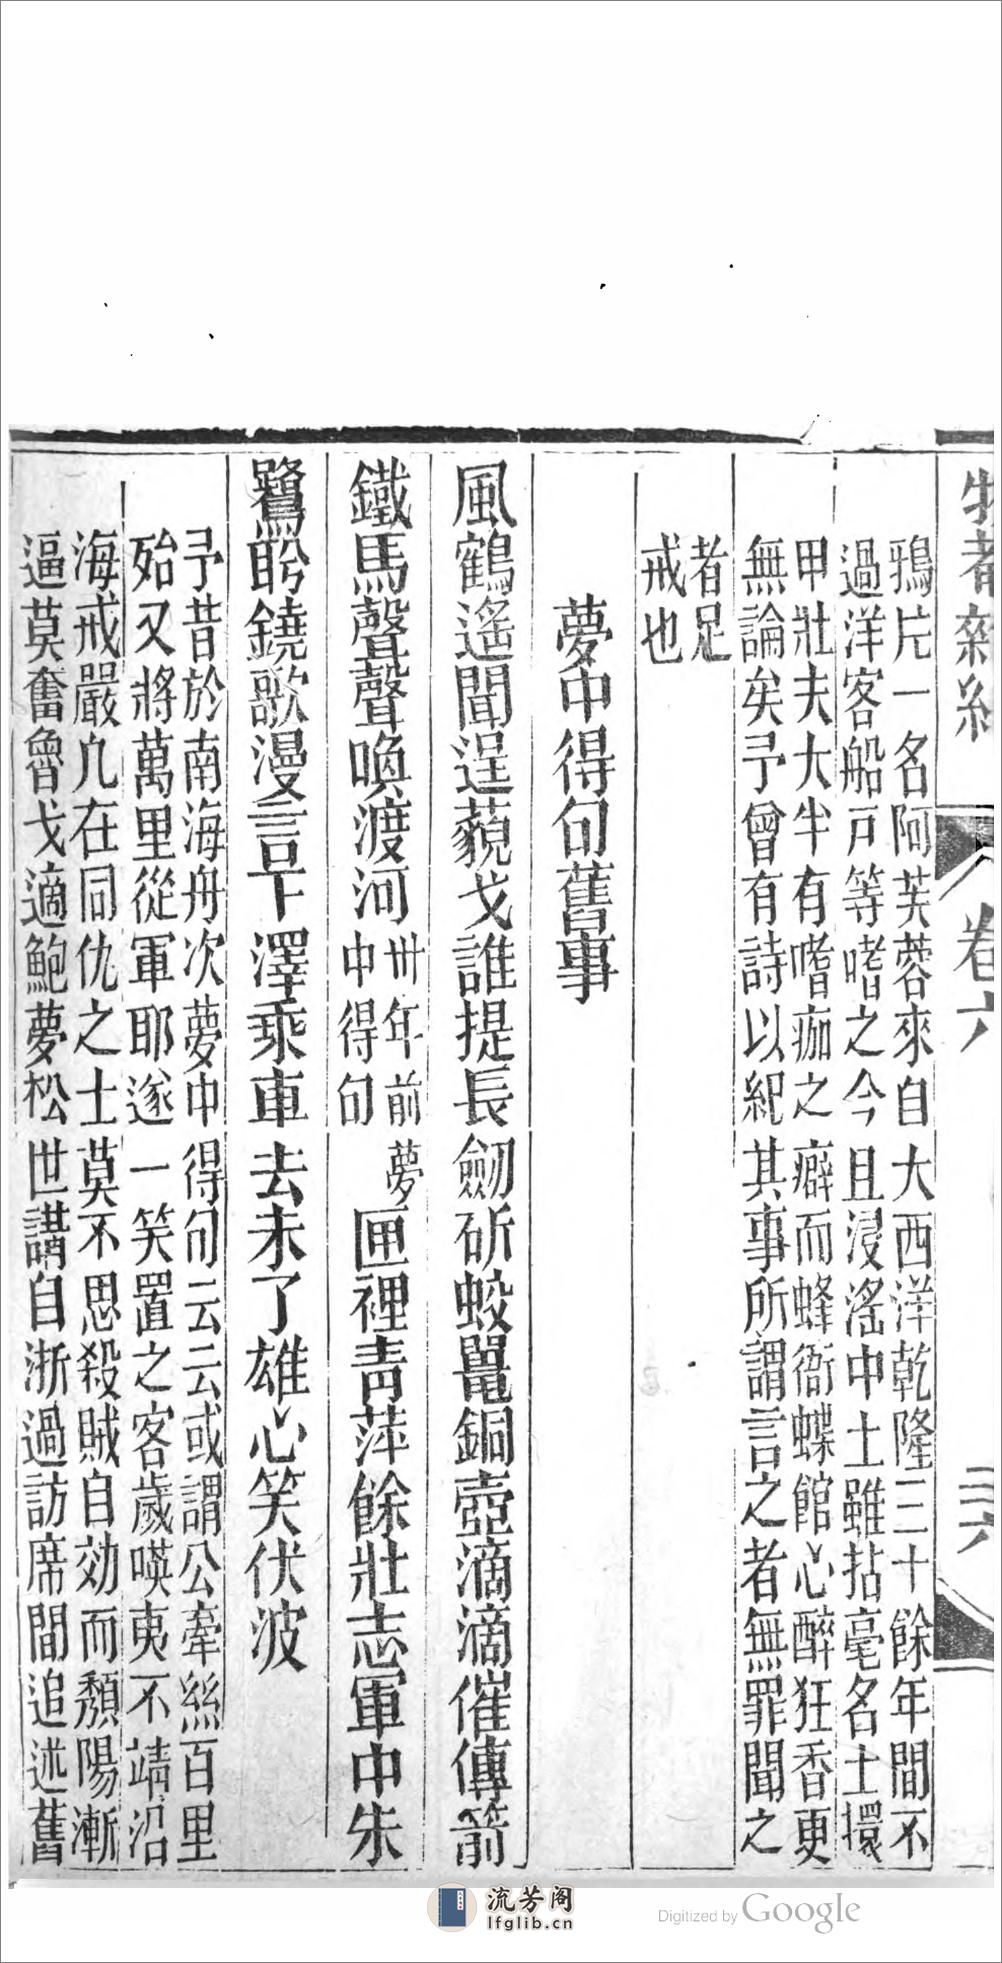 卷六
三六
鴉片一名阿芙蓉來自大西洋乾隆三十餘年間不
過洋客船戸等嗜之今且浸淫中土雖拈毫名士擐
甲壯夫大半有嗜痂之癖而蜂衙蝶館心醉狂香更
無論矣予曾有詩以紀其事所謂言之者無罪聞之
者足
戒也
夢中得句舊事
風鶴遙聞逞藐戈誰提長劒斫蛟鼉銅壺滴滴催傳箭
鐵馬聲聲喚渡河卅年前夢中得句匣裡青萍餘壯志軍中朱
鷺盼鐃歌漫言下澤乘車去未了雄心笑伏波
予昔於南海舟次夢中得句云云或謂公牽絲百里
殆又將萬里從軍耶遂一笑置之客歲暎夷不靖沿
海戒嚴凢在同仇之士莫不思殺賊自効而頽陽漸
逼莫奮魯戈適鮑夢松世講自浙過訪席間追述舊
流芳阁
lfglib.cn
Digitized by Google